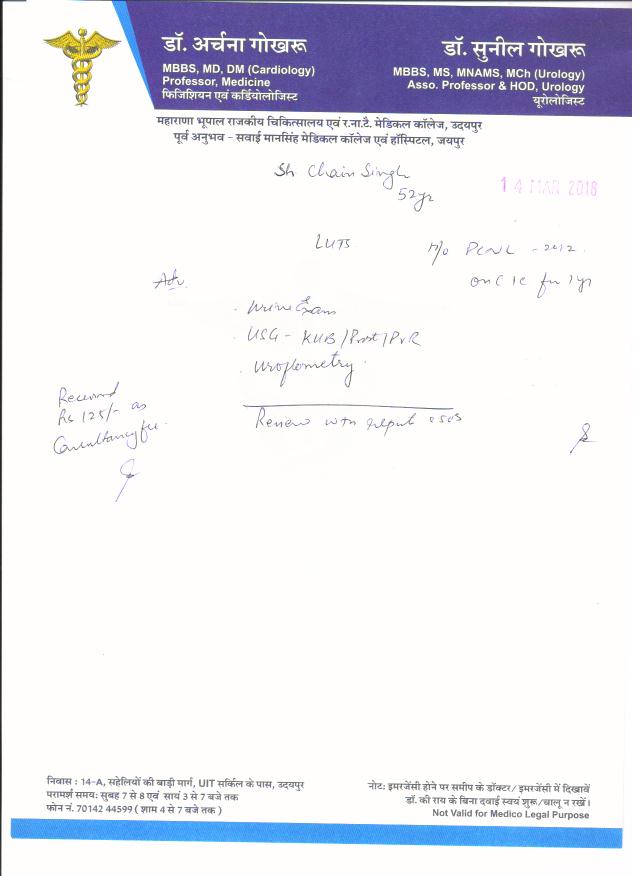 डॉ. अर्चना गोखरू
MBBS, MD, DM (Cardiology)
Professor, Medicine
फिजिशियन एवं कर्डियोलोजिस्ट
डॉ. सुनील गोखरू
MBBS, MS, MNAMS, MCh (Urology)
Asso. Professor & HOD, Urology
यूरोलोजिस्ट
महाराणा भूपाल राजकीय चिकित्सालय एवं र.ना.टै. मेडिकल कॉलेज, उदयपुर
पूर्व अनुभव - सवाई मानसिंह मेडिकल कॉलेज एवं हॉस्पिटल, जयपुर
Sh Chain Singh
52yr
14 MAR 2018
LUTS
H/o PCNL - 2012.
on CIC for 1yr
Adv.
. Urine Exam
. USG - KUB/Prost/PVR
. Uroflometry.
Received
Rs 125/- as
Consultancy fee.
Review with report
निवास : 14-A, सहेलियों की बाड़ी मार्ग, UIT सर्किल के पास, उदयपुर
परामर्श समय: सुबह 7 से 8 एवं सायं 3 से 7 बजे तक
फोन नं. 70142 44599 ( शाम 4 से 7 बजे तक )
नोट: इमरजेंसी होने पर समीप के डॉक्टर/ इमरजेंसी में दिखावें
डॉ. की राय के बिना दवाई स्वयं शुरू/चालू न रखें।
Not Valid for Medico Legal Purpose